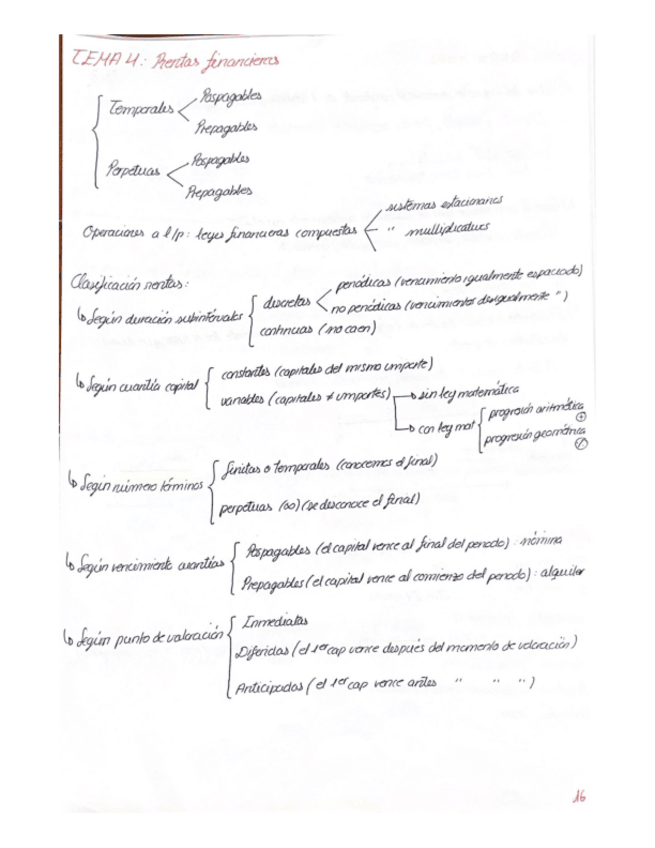 TEMA 4: Rentas financieras
Temporales
Pospagables
Prepagables
Perpetuas
Pospagables
Prepagables
Operaciones a l/p: leyes financieras compuestas
sistemas estacionarios
" multiplicativos
Clasificación rentas:
↳ Según duración subintervalos
discretas
periódicas (vencimiento igualmente espaciado)
no periódicas (vencimientos desigualmente ")
continuas (no caen)
↳ Según cuantía capital
constantes (capitales del mismo importe)
variables (capitales ≠ importes)
sin ley matemática
con ley mat
progresión aritmética
+
progresión geométrica
↳ Según número términos
finitas o temporales (conocemos el final)
perpetuas (∞) (se desconoce el final)
↳ Según vencimiento cuantías
Pospagables (el capital vence al final del periodo): nómina
Prepagables (el capital vence al comienzo del periodo): alquiler
↳ Según punto de valoración
Inmediatas
Diferidas (el 1er cap vence después del momento de valoración)
Anticipadas (el 1er cap vence antes " " ")
16